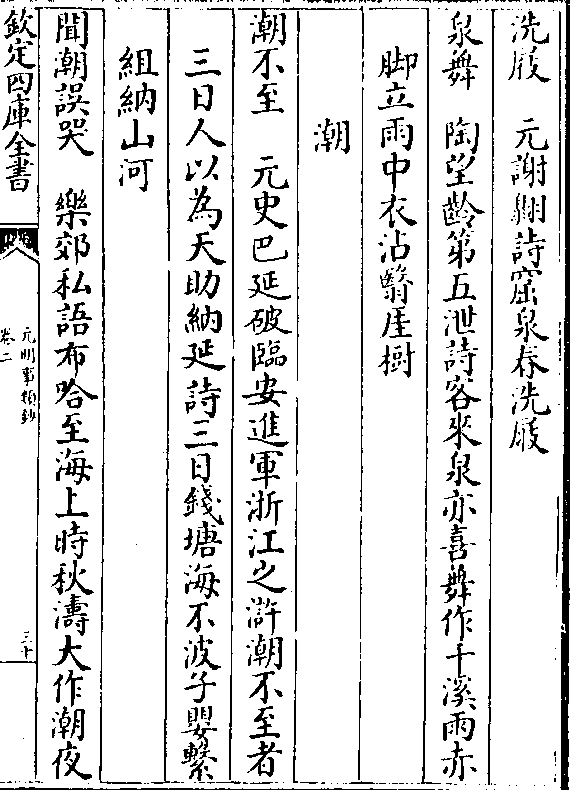 洗屐　元謝翺詩窟泉春洗屐
泉舞　陶望齡第五泄詩客來泉亦喜舞作千溪雨赤
脚立雨中衣沾翳厓樹
潮
潮不至　元史巴延破臨安進軍浙江之滸潮不至者
三日人以為天助納延詩三日錢塘海不波子嬰繫
組納山河
聞潮誤哭　樂郊私語布哈至海上時秋濤大作潮夜
欽定四庫全書
元明事類鈔
卷二
三十